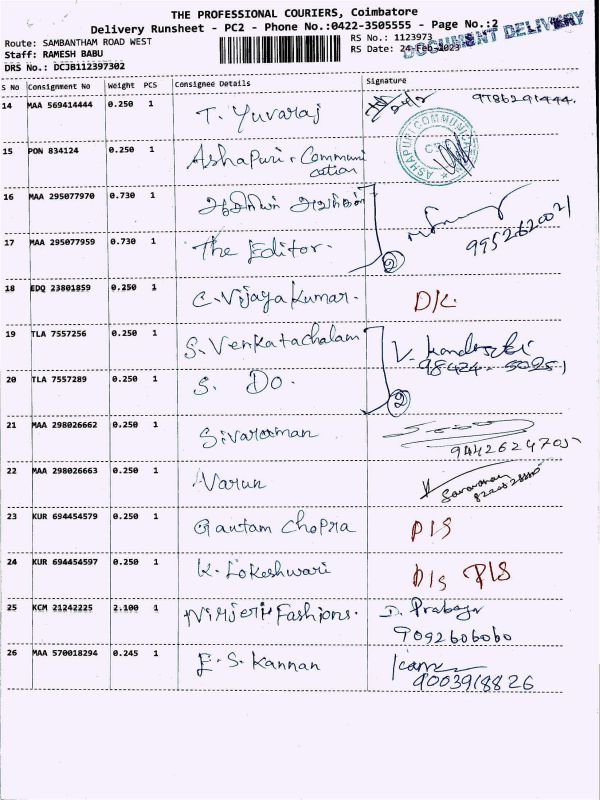 THE PROFESSIONAL COURIERS, Coimbatore
Delivery Runsheet - PC2 - Phone No.:0422-3505555 - Page No.:2
DOCUMENT DELIVERY
Route: SAMBANTHAM ROAD WEST
RS No.: 1123973
Staff: RAMESH BABU
RS Date: 24-Feb-2023
DRS No.: DCJB112397302
S No Consignment No Weight PCS Consignee Details Signature
14 MAA 569414444 0.250 1 T. Yuvaraj 24/2 9786291444.
15 PON 834124 0.250 1 Ashapuri Communi
cation
ASHAPURI COMMUNICATION
16 MAA 295077970 0.730 1 ஆசிரியர் அவர்கள்
17 MAA 295077959 0.730 1 The Editor. 2 9952662021
18 EDQ 23801859 0.250 1 C. Vijaya Kumar. D/L
19 TLA 7557256 0.250 1 S. Venkatachalam V.
98424 50251
20 TLA 7557289 0.250 1 S. Do. 2
21 MAA 298026662 0.250 1 Sivaraman
9442624705
22 MAA 298026663 0.250 1 Varun Saravanan
23 KUR 694454579 0.250 1 Gautam Chopra D/S
24 KUR 694454597 0.250 1 K. Lokeshwari D/s D/S
25 KCM 21242225 2.100 1 Nirjerit Fashions. D. Prabagar
9092606060
26 MAA 570018294 0.245 1 E. S. Kannan
9003918826